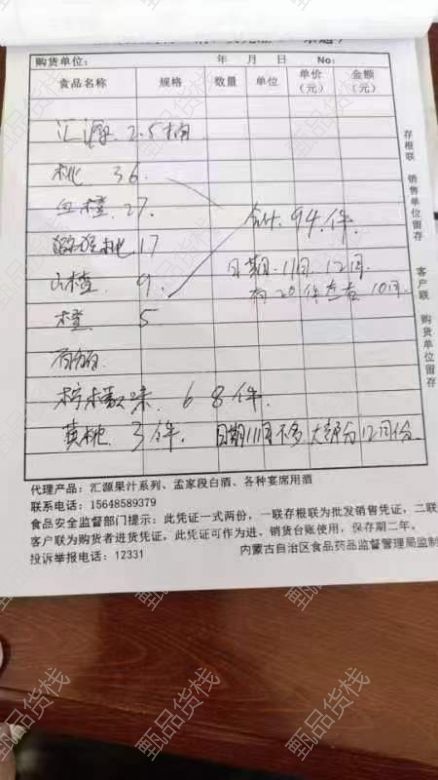 购货单位： 年 月 日 No:
食品名称 规格 数量 单位 单价（元） 金额（元）
汇源 2.5桶
桃 36
血橙 27
合计 94件
猕猴桃 17
日期 11月 12月
山楂 9
有20件左右 10月
橙 5
柠檬味 68件
黄桃 3件 日期11月不多 大部分12月份
存根联 销售单位留存
客户联 购货单位留存
代理产品：汇源果汁系列、孟家段白酒、各种宴席用酒
联系电话：15648589379
食品安全监督部门提示：此凭证一式两份，一联存根联为批发销售凭证，二联
客户联为购货者进货凭证，此凭证可作为进、销货台账使用，保存期二年。
投诉举报电话：12331 内蒙古自治区食品药品监督管理局监制
甄品货栈